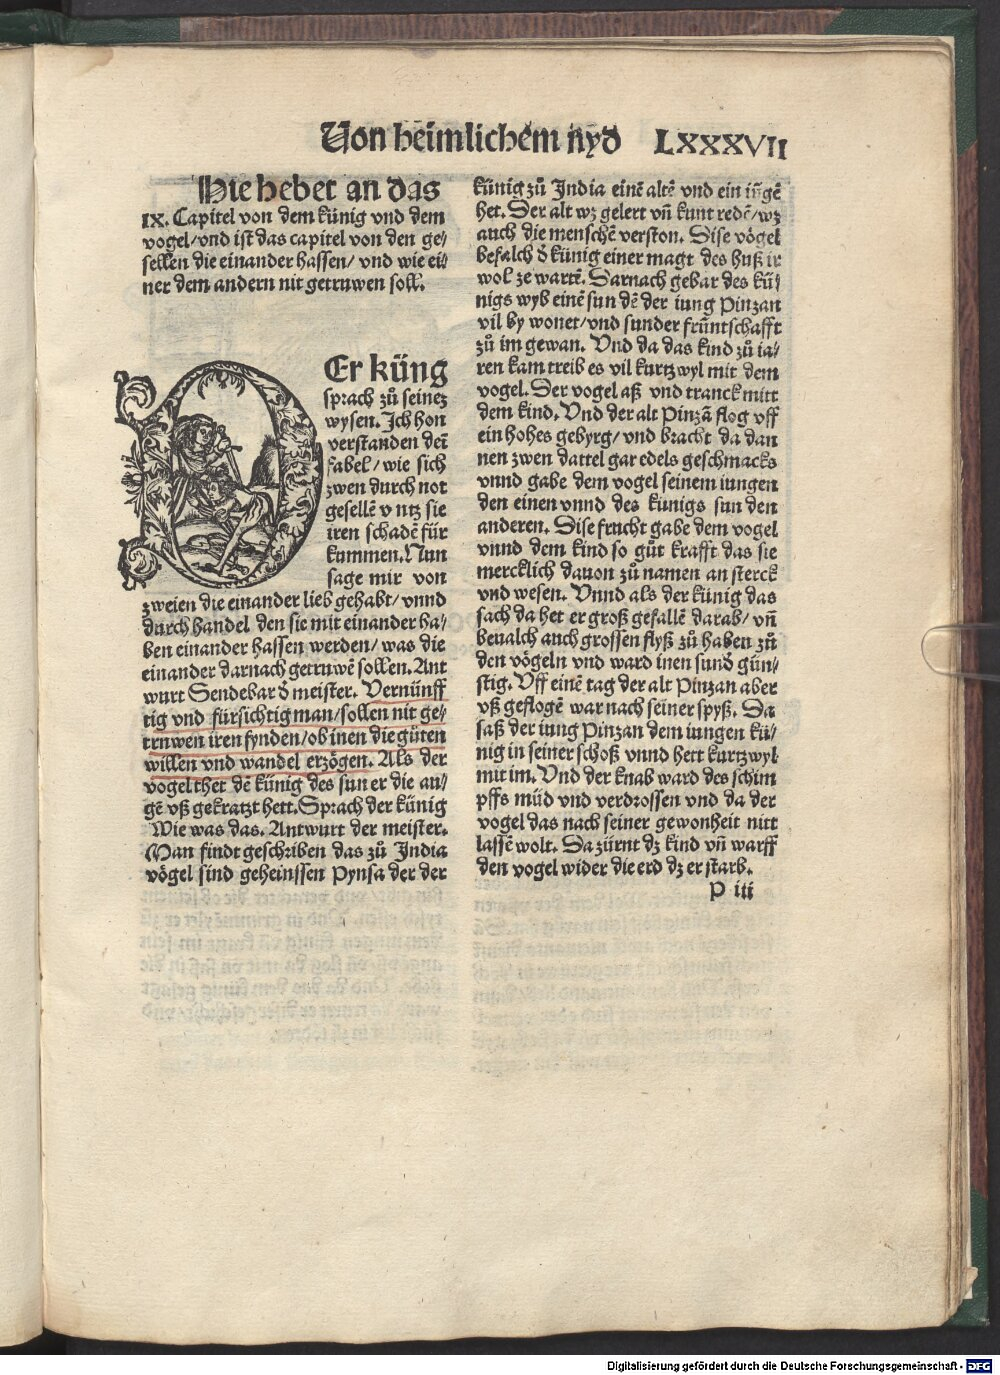 Von heimlichem nyd LXXXVII
Hie hebet an das
IX. Capitel von dem künig vnd dem
vogel/vnd ist das capitel von den ge/
sellen die einander hassen/ vnd wie ei/
ner dem andern nit getruwen soll.
DEr küng
sprach zů seinez
wysen. Ich hon
verstanden deī
fabel/ wie sich
zwen durch not
gesellē v ntz sie
iren schadē für
kummen. Nun
sage mir von
zweien die einander lieb gehabt/ vnnd
durch handel den sie mit einander ha/
ben einander hassen werden/ was die
einander darnach getruwē sollen. Ant
wurt Sendebar d̄ meister. Vernünff
tig vnd fürsichtig man/ sollen nit ge/
truwen iren fynden/ ob inen die gůten
willen vnd wandel erzögen. Als der
vogel thet dē künig des sun er die au/
gē vß gekratzt hett. Sprach der künig
Wie was das. Antwurt der meister.
Man findt geschriben das zů India
vögel sind geheinssen Pynsa der der
künig zů India einē altē vnd ein iṽgē
het. Der alt wz gelert vñ kunt redē/ wz
auch die menschē verston. Dise vögel
befalch d̄ künig einer magt des huß ir
wol ze wartē. Darnach gebar des kü/
nigs wyb einē sun dē der iung Pinzan
vil by wonet/ vnd sunder frūntschafft
zů im gewan. Vnd da das kind zů ia/
ren kam treib es vil kurtzwyl mit dem
vogel. Der vogel aß vnd tranck mitt
dem kind. Vnd der alt Pinzā flog vff
ein hohes gebyrg/ vnd bracht da dan
nen zwen dattel gar edels geschmacks
vnnd gabe dem vogel seinem iungen
den einen vnnd des künigs sun den
anderen. Dise frucht gabe dem vogel
vnnd dem kind so gůt krafft das sie
mercklich dauon zů namen an sterck
vnd wesen. Vnnd als der künig das
sach da het er groß gefallē darab/ vñ
beualch auch grossen flyß zů haben zů
den vögeln vnd ward inen sund̄ gün/
stig. Vff einē tag der alt Pinzan aber
vß geflogē war nach seiner spyß. Da
saß der iung Pinzan dem iungen kü/
nig in seiner schoß vnnd hett kurtzwyl
mit im. Vnd der knab ward des schim
pffs müd vnd verdrossen vnd da der
vogel das nach seiner gewonheit nitt
lassē wolt. Da zürnt dz kind vñ warff
den vogel wider die erd dz er starb.
P iii
Digitalisierung gefördert durch die Deutsche Forschungsgemeinschaft - DFG